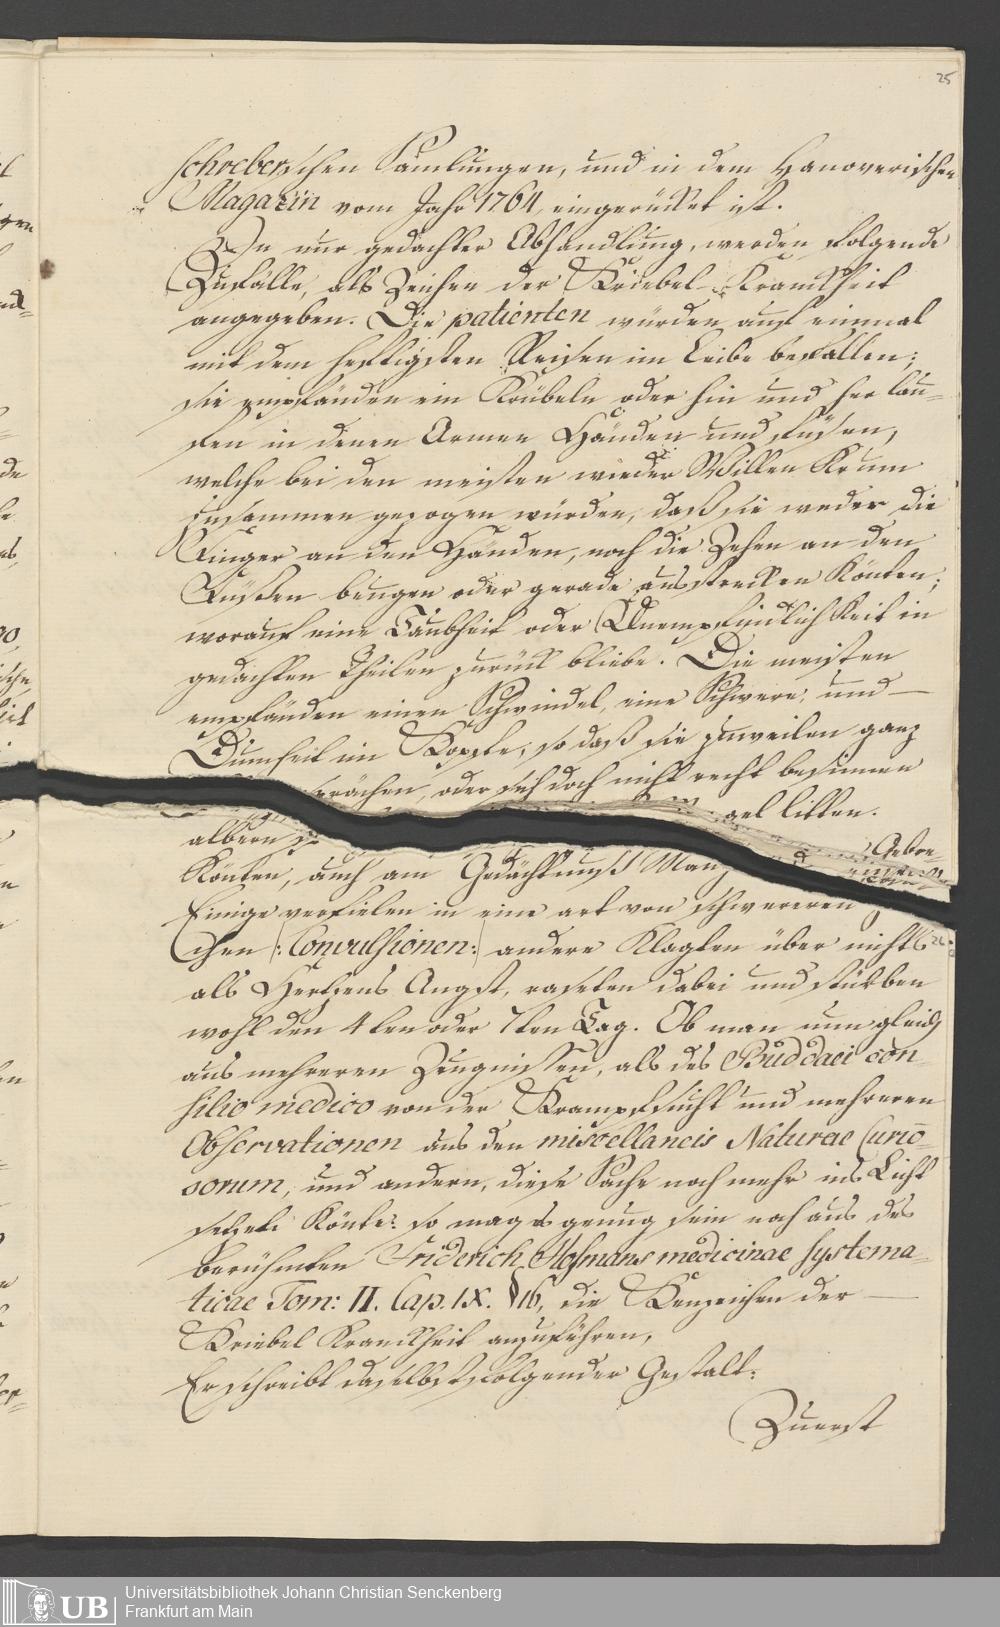 25
Schreberschen Samlungen, und in dem Hanoverischen
Magazin vom Jahr 1764, eingerücket ist.
In nur gedachter Abhandlung, werden folgende
Zufälle, als Zeichen der Kriebel-Kranckheit
angegeben. Die patienten würden auf einmal
mit dem heftigsten Reisen im Leibe befallen;
sie empfänden ein Krübeln oder hin und her lau-
fen in denen Armen Händen und füsen,
welche bei den meisten wieder Willen Krum
zusammen gezogen würden, daß sie weder die
Finger an den Händen, noch die Zehen an den
Füßen beugen oder gerade ausstrecken Könten;
worauf eine Taubheit oder Unempfindlichkeit in
gedachten Theilen zurück bliebe. Die meisten
empfänden einen Schwindel, eine Schwere, und
Dumheit im Kopfe, so daß sie zuweilen ganz
albern sprächen, oder sich doch nicht recht besinnen
Könten, auch am Gedächtnuß Mangel litten.
Einige verfielen in eine art von schwereren Gebre-
chen |:Convulsionen:| andere Klagten über nichts
als Hertzens Angst, raseten dabei und stürben
wohl den 4ten oder 7ten Tag. Ob man nun gleich
aus mehreren Zeugnissen, als des Buddaei con-
silio medico von der Krampfsucht und mehreren
Observationen aus den miscellaneis Naturae Curio-
sorum, und andern, diese Sache noch mehr ins Licht
setzen Könte: so mag es genug sein noch aus des
berühmten Friderich Hofmans medicinae systema-
ticae Tom: II. Cap. IX. § 16, die Kenzeichen der
Kriebel Kranckheit anzuführen,
Er schreibt daselbst folgender Gestalt:
Zuerst
UB
Universitätsbibliothek Johann Christian Senckenberg
Frankfurt am Main